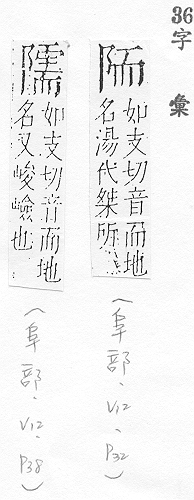 36
字彙
陑
如支切音而地
名湯代桀所
(阜部、V12、P32)
隭
如支切音而地
名又峻嶮也
(阜部、V12、P38)